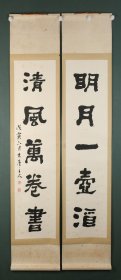 明月一壺酒
清風萬卷書